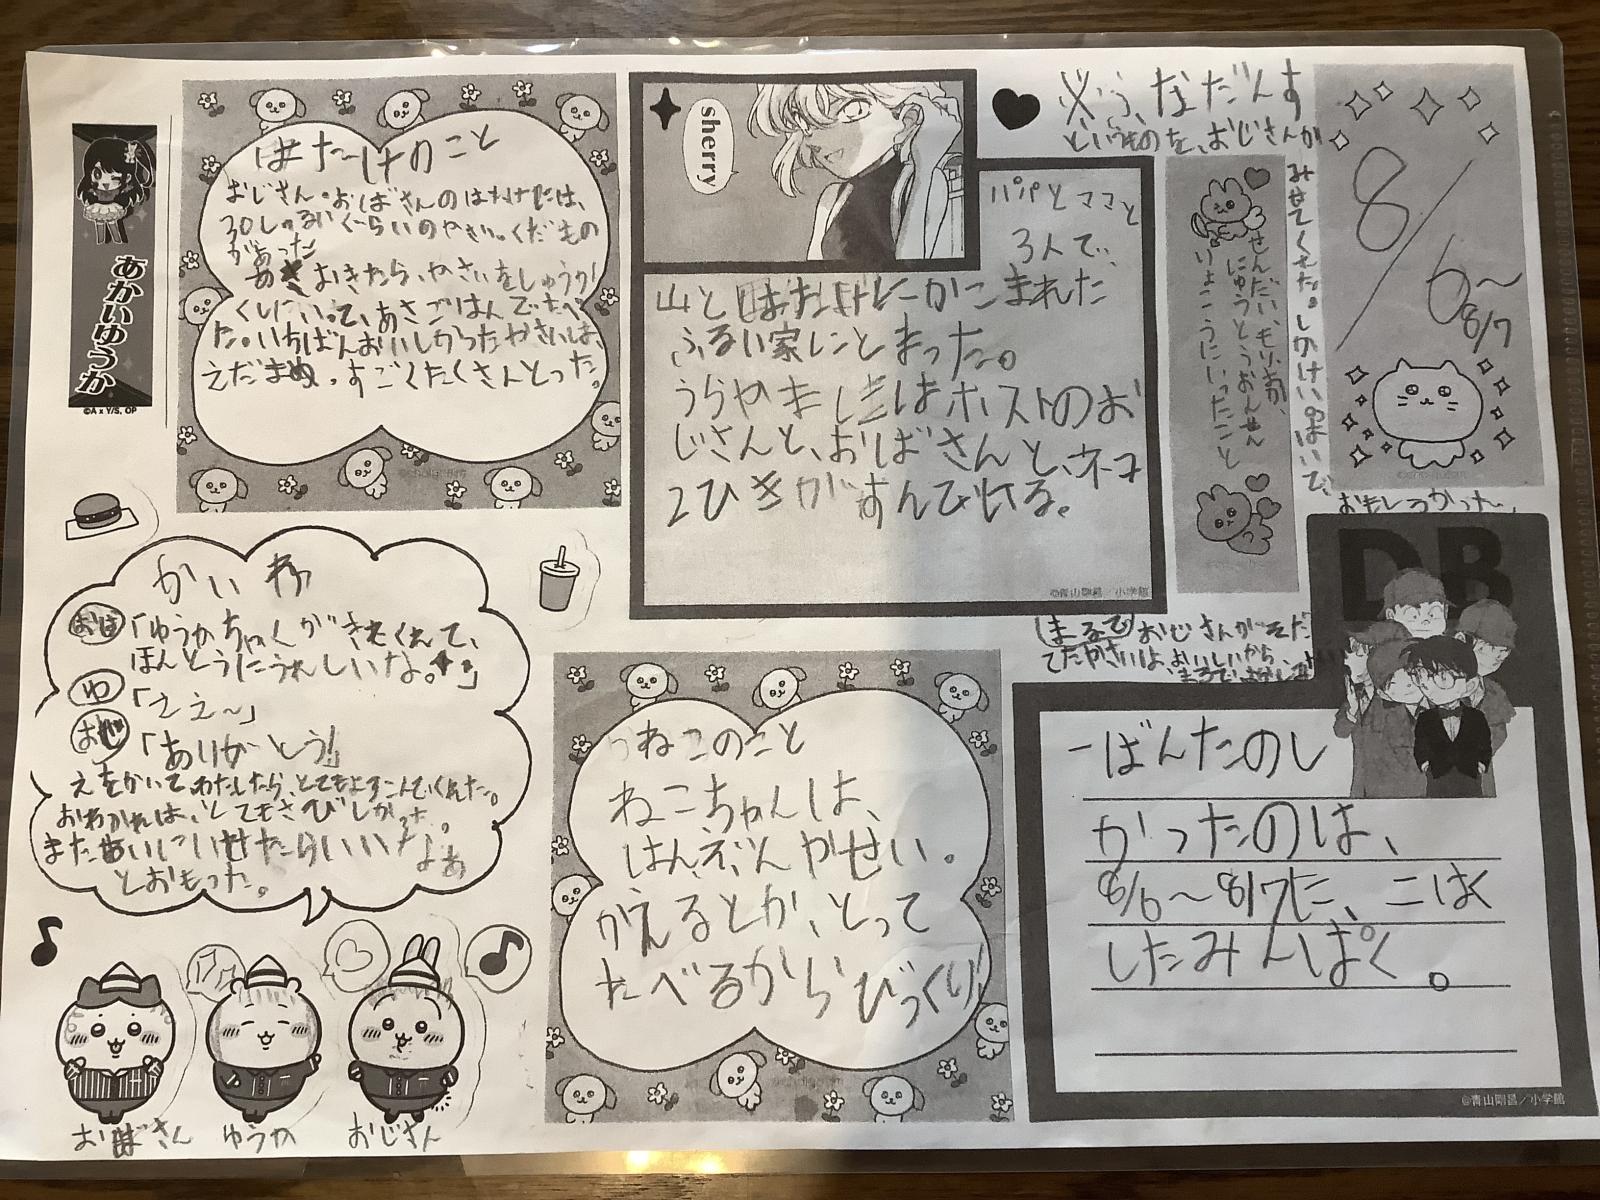 8/6~
8/7
せんだい、もりおか、
にゅうとうおんせん
りょこうにいったこと
sherry
パパとママと
3人で、
山とはたけにかこまれた
ふるい家にとまった。
うらやましきはホストのお
じさんと、おばさんと、ネコ
2ひきがすんでいる。
©青山剛昌/小学館
というものを、おじさんが
みせてくれた。しかけいっぱいで、
おもしろかった。
はたけのこと
おじさん・おばさんのはたけには、
30しゅるいぐらいのやさい。くだもの
があった
あさおきたら、やさいをしゅうか
くしにいって、あさごはんでたべ
た。いちばんおいしかったやさいは、
えだまめ。すごくたくさんとった。
あかいゆうか
©A x Y/S, OP
DB
一ばんたのし
かったのは、
8/6~8/7に、二はく
したみんぱく。
©青山剛昌/小学館
まるで
おじさんがそだ
てたやさいは、おいしいから、
ねこのこと
ねこちゃんは、
はんぶんやせい。
かえるとか、とって
たべるからびっくり
かいわ
おば「ゆうかちゃんがきてくれて、
ほんとうにうれしいな。」
ゆ「ええ~」
おじ「ありがとう!」
えをかいてわたしたら、とてもよろこんでくれた。
おわかれは、とてもさびしかった。
またあいにいけたらいいなぁ
とおもった。
おばさん
ゆうか
おじさん